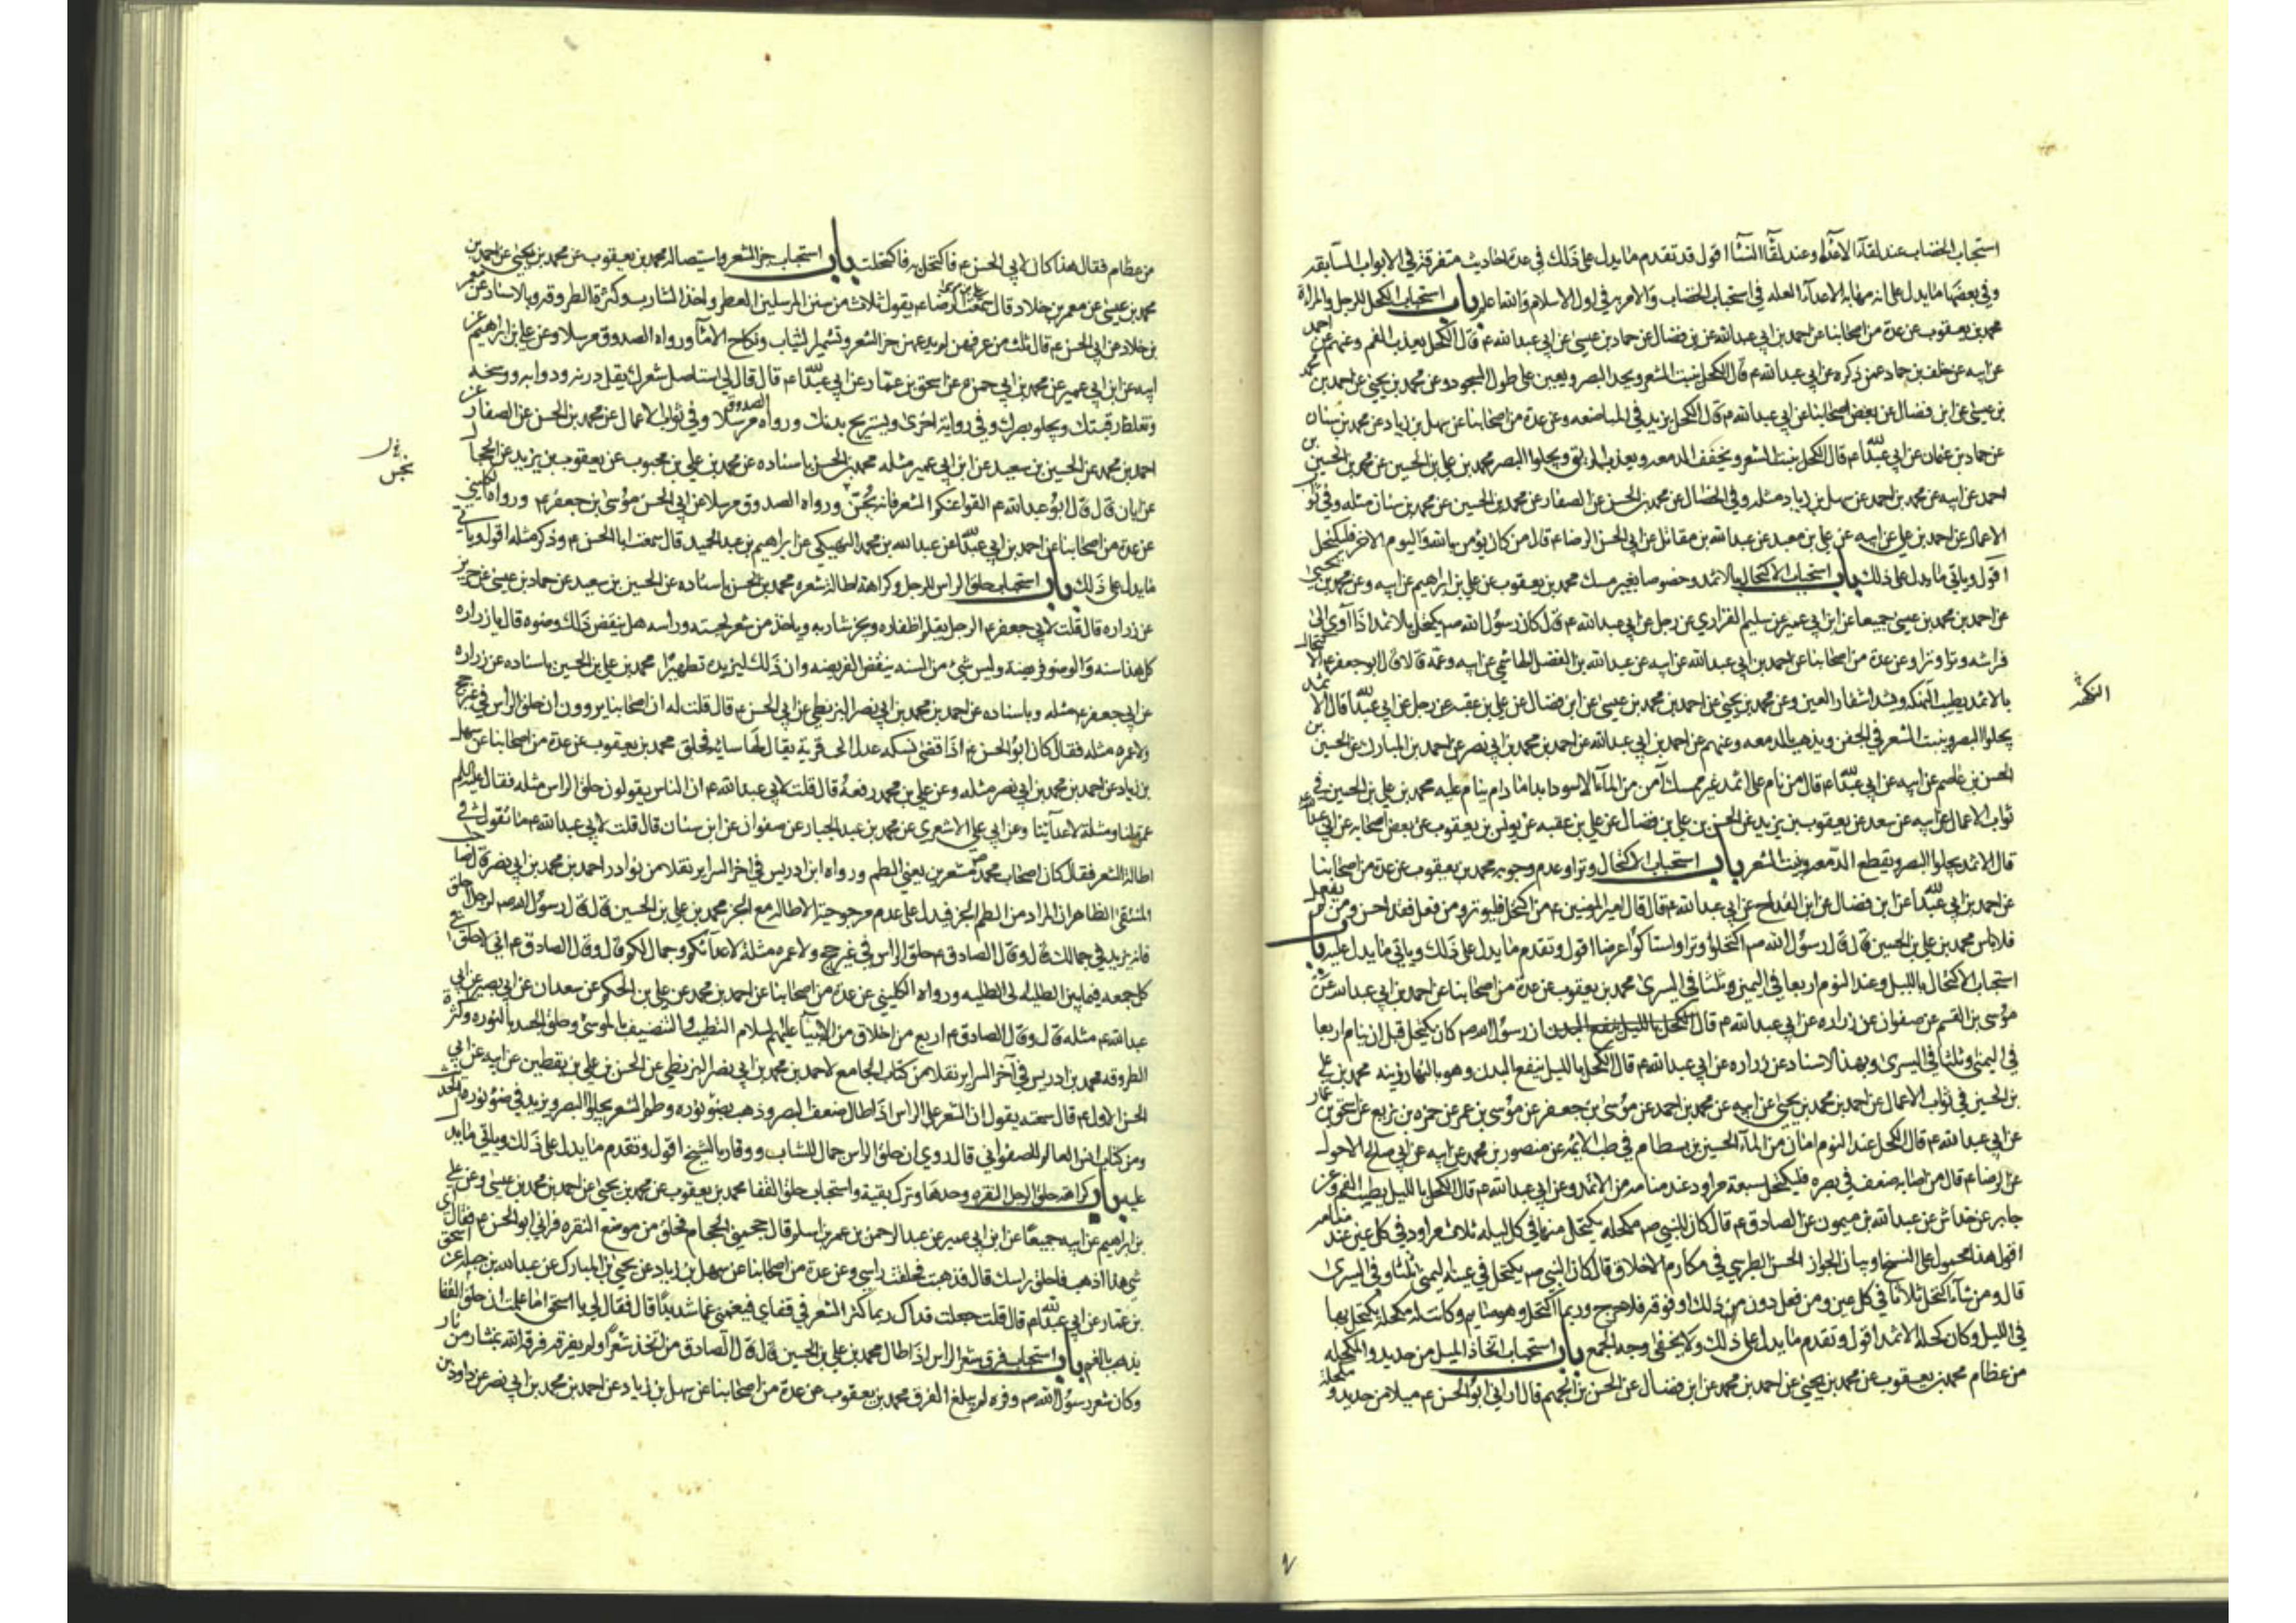 استحباب الخضاب عند لقاء الاعداء وعند لقاء النساء اقول قد تقدم ما يدل على ذلك في عدة احاديث متفرقة في الابواب السابقه
وفي بعضها ما يدل على انه مهابه الاعداء العله في استحباب الخضاب والامر به في اول الاسلام والله اعلم باب استحباب الكحل للرجل والمراة
محمد بن يعقوب عن عدة من اصحابنا عن احمد بن ابي عبد الله عن بن فضال عن حماد بن عيسى عن ابي عبد الله ع قال الكحل يعذب الفم وعنهم عن احمد
عن ابيه عن خلف بن حماد عمن ذكره عن ابي عبد الله ع قال الكحل ينبت الشعر ويحد البصر ويعين على طول السجود وعن محمد بن يحيى عن احمد بن محمد
بن عيسى عن ابن فضال عن بعض اصحابنا عن ابي عبد الله ع قال الكحل يزيد في المباضعه وعن عدة من اصحابنا عن سهل بن زياد عن محمد بن سنان
عن حماد بن عثمان عن ابي عبد الله ع قال الكحل ينبت الشعر ويجفف الدمعه ويعذب الريق ويجلوا البصر محمد بن علي بن الحسين عن محمد بن الحسين بن
احمد عن ابيه عن محمد بن احمد عن سهل بن زياد مثله وفي الخصال عن محمد بن الحسن عن الصفار عن محمد بن الحسين عن محمد بن سنان مثله وفي ثواب
الاعمال عن احمد بن علي عن ابيه عن علي بن معبد عن عبد الله بن مقاتل عن ابي الحسن الرضا ع قال من كان يؤمن بالله واليوم الاخر فليكتحل
اقول وياتي ما يدل على ذلك باب استحباب الاكتحال بالاثمد وخصوصا بغير مسك محمد بن يعقوب عن علي بن ابراهيم عن ابيه وعن محمد بن يحيى
عن احمد بن محمد بن عيسى جميعا عن ابن ابي عمير عن سليم الفراري عن رجل عن ابي عبد الله ع قال كان رسول الله ص يكتحل بالاثمد اذا آوى الى
فراشه وترا وترا وعن عدة من اصحابنا عن احمد بن ابي عبد الله عن ابيه عن عبد الله بن الفضل الهاشمي عن ابيه وعمه قالا قال ابو جعفر ع الاكتحال
بالاثمد يطيب النكهه ويشد اشفار العين وعن محمد بن يحيى عن احمد بن محمد بن عيسى عن ابن فضال عن علي بن عقبه عن رجل عن ابي عبد الله ع قال الاثمد
يجلوا البصر وينبت الشعر في الجفن ويذهب بالدمعه وعنهم عن احمد بن ابي عبد الله عن احمد بن محمد بن ابي نصر عن احمد بن المبارك عن الحسين بن
الحسن بن عاصم عن ابيه عن ابي عبد الله ع قال من نام على اثمد غير ممسك آمن من الماء الاسود ابدا ما دام ينام عليه محمد بن علي بن الحسين في
ثواب الاعمال عن ابيه عن سعد عن يعقوب بن يزيد عن الحسن بن علي بن فضال عن علي بن عقبه عن يونس بن يعقوب عن بعض اصحابه عن ابي عبد الله ع
قال الاثمد يجلوا البصر ويقطع الدمعه وينبت الشعر باب استحباب الاكتحال وترا وعدم وجوبه محمد بن يعقوب عن عدة من اصحابنا
عن احمد بن ابي عبد الله عن ابن فضال عن ابن القداح عن ابي عبد الله ع قال قال امير المؤمنين ع من اكتحل فليوتر ومن فعل فقد احسن ومن لم يفعل
فلا باس محمد بن علي بن الحسين قال قال رسول الله ص اكتحلوا وترا واستاكوا عرضا اقول وتقدم ما يدل على ذلك وياتي ما يدل عليه باب
استحباب الاكتحال بالليل وعند النوم اربعا في اليمين وثلثا في اليسرى محمد بن يعقوب عن عدة من اصحابنا عن احمد بن ابي عبد الله عن
موسى بن القسم عن صفوان عن زراره عن ابي عبد الله ع قال الكحل بالليل ينفع البدن ان رسول الله ص كان يكتحل قبل ان ينام اربعا
في اليمنى وثلثا في اليسرى وبهذا الاسناد عن زراره عن ابي عبد الله ع قال الكحل بالليل ينفع البدن وهو بالنهار زينه محمد بن علي
بن الحسين في ثواب الاعمال عن احمد بن محمد بن يحيى عن ابيه عن محمد بن احمد عن موسى بن جعفر عن موسى بن عمر عن حمزه بن بزيع عن اسحق بن عمار
عن ابي عبد الله ع قال الكحل عند النوم امان من الماء الحسين بن بسطام في طب الائمه عن منصور بن محمد عن ابيه عن ابي صلح الاحول
عن الرضا ع قال من اصابه ضعف في بصره فليكتحل سبعة مراود عند منامه من الاثمد وعن ابي عبد الله ع قال الكحل بالليل يطيب الفم وعن
جابر عن خداش عن عبد الله بن ميمون عن الصادق ع قال كان للنبي ص مكحله يكتحل منها في كل ليله ثلاث مراود في كل عين عند منامه
اقول هذا محمول على النسخ او بيان الجواز الحسن الطبرسي في مكارم الاخلاق قال كان النبي ص يكتحل في عينه اليمنى ثلثا وفي اليسرى
قال ومن شاء اكتحل ثلاثا في كل عين ومن فعل دون ذلك او فوقه فلا حرج وربما اكتحل وهو صايم وكانت له مكحلة يكتحل بها
في الليل وكان كحله الاثمد اقول وتقدم ما يدل على ذلك ولا يخفى وجه الجمع باب استحباب اتخاذ الميل من حديد والمكحله
من عظام محمد بن يعقوب عن محمد بن يحيى عن احمد بن محمد عن ابن فضال عن الحسن بن الجهم قال اراني ابو الحسن ع ميلا من حديد ومكحلة
النكهة
من عظام فقال هذا كان لابي الحسن ع فاكتحل به فاكتحلت باب استحباب جز الشعر واستيصاله محمد بن يعقوب عن محمد بن يحيى عن احمد بن
محمد بن عيسى عن معمر بن خلاد قال سمعت الرضا ع يقول ثلاث من سنن المرسلين العطر واخذ الشارب وكثرة الطروقه وبالاسناد عن معمر
بن خلاد عن ابي الحسن ع قال ثلث من عرفهن لم يدعهن جز الشعر وتشمير الثياب ونكاح الامآ ورواه الصدوق مرسلا وعن علي بن ابراهيم عن
ابيه عن ابن ابي عمير عن محمد بن ابي حمزه عن اسحق بن عمار عن ابي عبد الله ع قال قال لي استاصل شعرك يقل درنه ودوابه ووسخه
وتغلظ رقبتك ويجلو بصرك وفي رواية اخرى ويستريح بدنك ورواه الصدوق مرسلا وفي ثواب الاعمال عن محمد بن الحسن عن الصفار عن
احمد بن محمد عن الحسين بن سعيد عن ابن ابي عمير مثله محمد بن الحسن باسناده عن محمد بن علي بن محبوب عن يعقوب بن يزيد عن الحجال
عن ابان قال قال ابو عبد الله ع القوا عنكم الشعر فانه يحسن ورواه الصدوق مرسلا عن ابي الحسن موسى بن جعفر ع ورواه الكليني
عن عدة من اصحابنا عن احمد بن ابي عبد الله عن عبد الله بن محمد النهيكي عن ابراهيم بن عبد الحميد قال سمعت ابا الحسن ع وذكر مثله اقول وياتي
ما يدل على ذلك باب استحباب حلق الراس للرجل وكراهة اطالة شعره محمد بن الحسن باسناده عن الحسين بن سعيد عن حماد بن عيسى عن حريز
عن زراره قال قلت لابي جعفر ع الرجل يقلم اظفاره ويجز شاربه وياخذ من شعر لحيته وراسه هل ينقض ذلك وضوءه قال يا زراره
كل هذا سنه والوضوء فريضة وليس شيء من السنه ينقض الفريضه وان ذلك ليزيده تطهيرا محمد بن علي بن الحسين باسناده عن زراره
عن ابي جعفر ع مثله وباسناده عن احمد بن محمد بن ابي نصر البزنطي عن ابي الحسن ع قال قلت له ان اصحابنا يروون ان حلق الراس في غير حج
ولا عمره مثله فقال كان ابو الحسن ع اذا قضى نسكه عدل الى قرية يقال لها سايه فحلق محمد بن يعقوب عن عدة من اصحابنا عن سهل
بن زياد عن احمد بن محمد بن ابي نصر مثله وعن علي بن محمد رفعه قال قلت لابي عبد الله ع ان الناس يقولون حلق الراس مثله فقال عليه السلم
عمرة لنا ومثلة لاعدآئنا وعن ابي علي الاشعري عن محمد بن عبد الجبار عن صفوان عن ابن سنان قال قلت لابي عبد الله ع ما تقول في
اطالة الشعر فقال كان اصحاب محمد ص مشعرين يعني الطم ورواه ابن ادريس في اخر السراير نقلا من نوادر احمد بن محمد بن ابي نصر قال صاحب
المنتقى الظاهر ان المراد من الطم الجز فيدل على عدم مرجوحية الاطاله مع الجز محمد بن علي بن الحسين قال قال رسول الله ص لرجل احلق
فانه يزيد في جمالك قال وقال الصادق ع حلق الراس في غير حج ولا عمره مثلة لاعدآئكم وجمال لكم قال وقال الصادق ع اني لاحلق
كل جمعه فيما بين الطليه الى الطليه ورواه الكليني عن عدة من اصحابنا عن احمد بن محمد عن علي بن الحكم عن سعدان عن ابي بصير عن ابي
عبد الله ع مثله قال وقال الصادق ع اربع من اخلاق من الانبيآ عليهم السلام التطيب والتنضيف بالموسى وحلق الجسد بالنوره وكثرة
الطروقه محمد بن ادريس في آخر السراير نقلا من كتاب الجامع لاحمد بن محمد بن ابي نصر البزنطي عن الحسن بن علي بن يقطين عن ابيه عن ابي
الحسن الاول ع قال سمعته يقول ان الشعر على الراس اذا طال ضعف البصر وذهب بضوء نوره وطم الشعر يجلوا البصر ويزيد في ضوء نوره الحديث
ومن كتاب انس العالم للصفواني قال روي ان حلق الراس جمال للشاب ووقار بالشيخ اقول وتقدم ما يدل على ذلك وياتي ما يدل
عليه باب كراهة حلق الرجل النقره وحدها وترك بقية واستحباب حلق القفا محمد بن يعقوب عن محمد بن يحيى عن احمد بن محمد بن عيسى وعن علي
بن ابراهيم عن ابيه جميعا عن ابن ابي عمير عن عبد الرحمن بن عمر بن اسلم قال حجمني الحجام فحلق من موضع النقره فراني ابو الحسن ع فقال اي
شي هذا اذهب فاحلق راسك قال فذهبت فحلقت راسي وعن عدة من اصحابنا عن سهل بن زياد عن يحيى بن المبارك عن عبد الله بن جبله عن اسحق
بن عمار عن ابي عبد الله ع قال قلت جعلت فداك ربما كثر الشعر في قفاي فيغمني غما شديدا قال فقال لي يا اسحق اما علمت ان حلق القفا
يذهب بالغم باب استحباب فرق شعر الراس اذا طال محمد بن علي بن الحسين قال قال الصادق من اتخذ شعرا ولم يفرقه فرقه الله بمنشار من نار
وكان شعر رسول الله ص وفره لم يبلغ الفرق محمد بن يعقوب عن عدة من اصحابنا عن سهل بن زياد عن احمد بن محمد بن ابي نصر عن داود بن